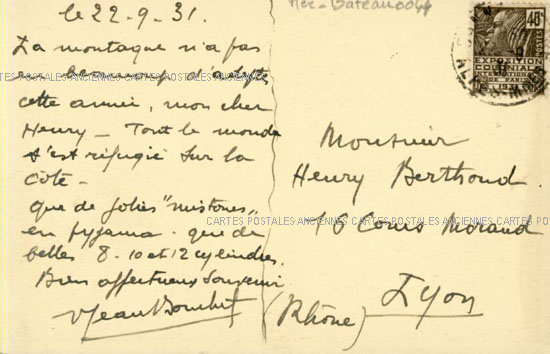 le 22-9-31.
La montagne n'a pas
eu beaucoup d'adeptes
cette année, mon cher
Henry - Tout le monde
s'est réfugié sur la
côte -
que de jolies "mistones"
en pyjama - que de
belles 8-10 et 12 cylindres.
Bien affectueux souvenir
Monsieur
Henry Berthoud.
16 Cours Morand
Lyon
(Rhône)
40c
EXPOSITION
COLONIALE
INTERNATIONALE
PARIS 1931
CARTES POSTALES ANCIENNES CARTES POSTALES ANCIENNES CARTES POSTALES ANCIENNES
CARTES POSTALES ANCIENNES CARTES POSTALES ANCIENNES